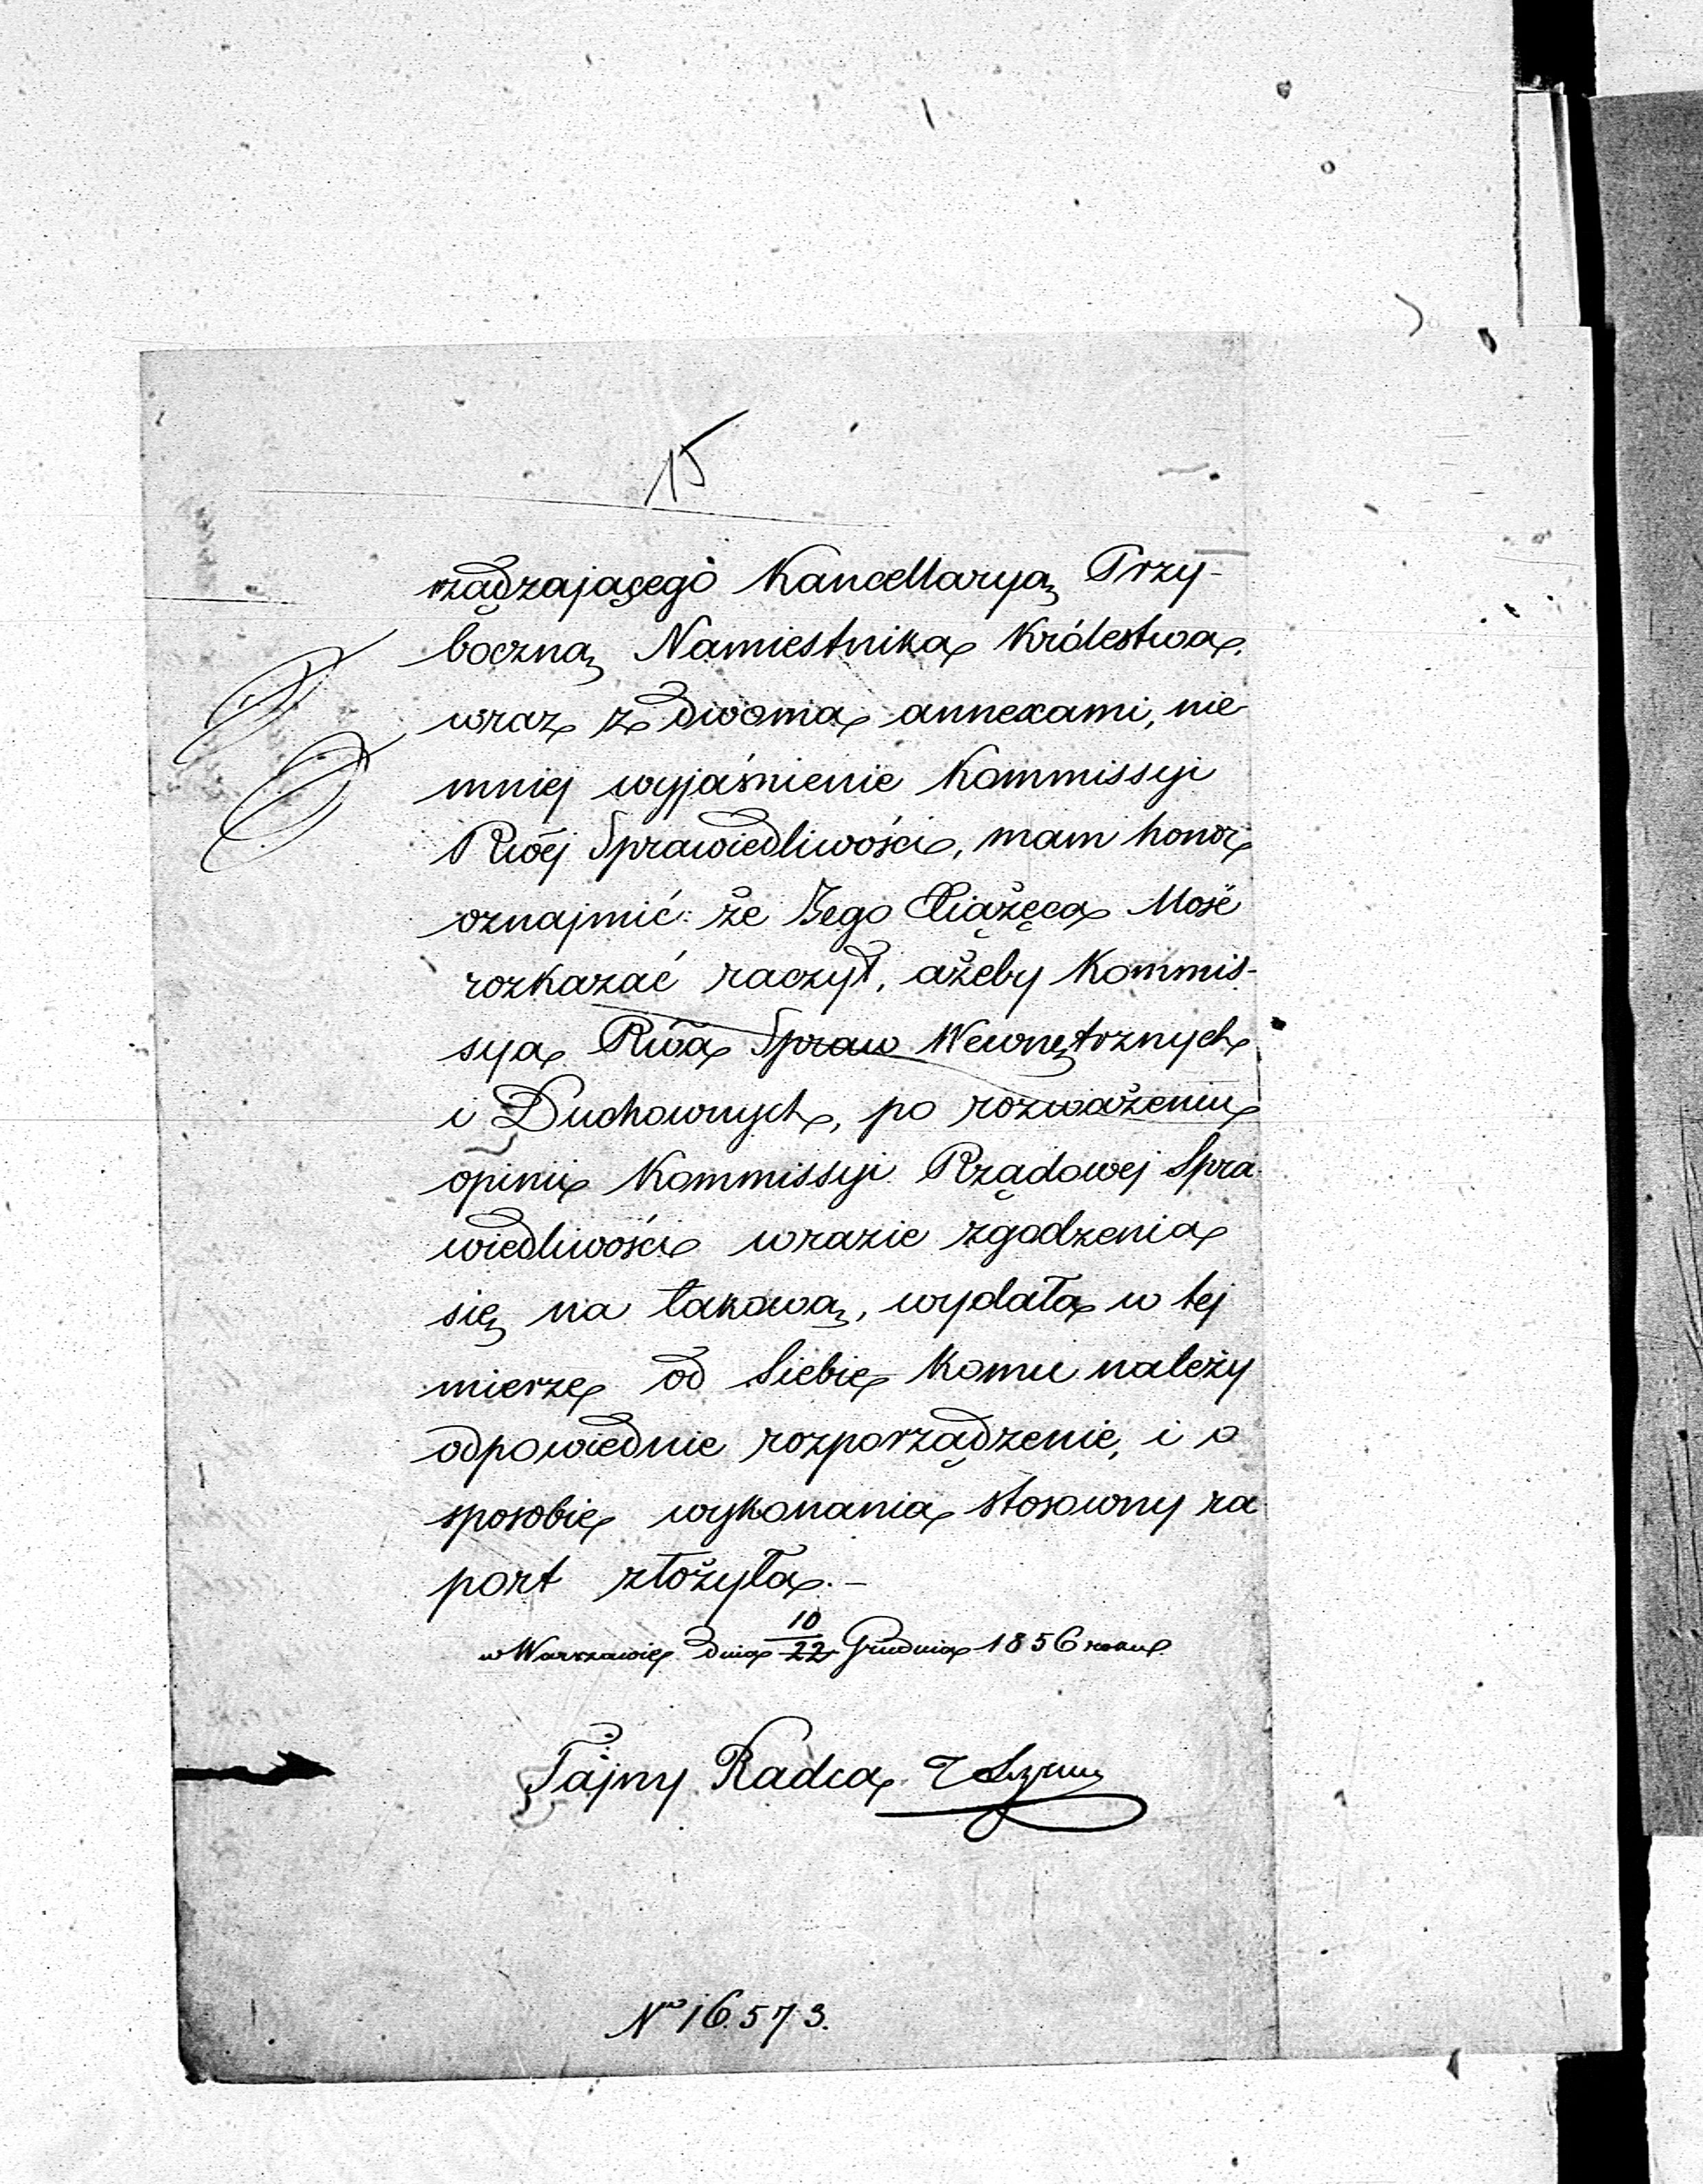 15
rządzającego Kancellaryą Przy-
boczną Namiestnika Królestwa,
wraz z dwoma annexami, nie
mniej wyjaśnienie Kommissyi
Rwéj Sprawiedliwości, mam honor
oznajmić: że Jego Xiążęca Mość
rozkazać raczył, ażeby Kommis-
sya Rwa Spraw Wewnętrznych
i Duchownych, po rozważeniu
opinii Kommissyi Rządowej Spra-
wiedliwości wrazie zgodzenia
się na takową, wydała w tej
mierze od siebie komu należy
odpowiednie rozporządzenie, i o
sposobie wykonania stosowny ra
port złożyła.—
w Warszawie dnia 10/22 Grudnia 1856 roku
Tajny Radca
No 16.573.